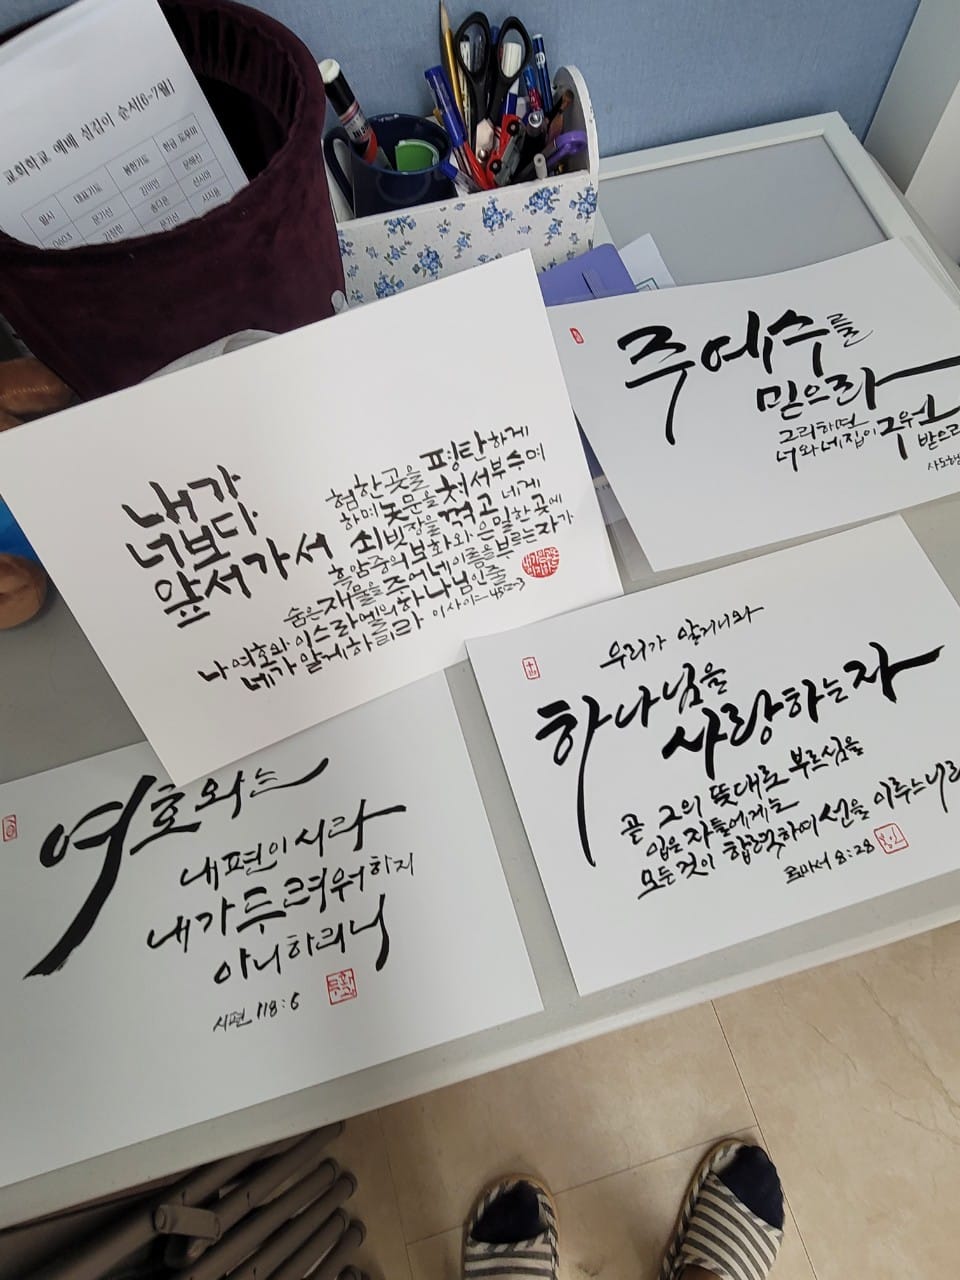 교회학교 예배 섬김이 순서(6-7월)
일시 대표기도 봉헌기도 헌금 도우미
0603 문기선 김미연 문혜신
김정현 송다은 신시아
문기선 서지윤
내가
너보다
앞서가서
험한 곳을 평탄하게
하며 놋문을 쳐서 부수며
쇠빗장을 꺾고 네게
흑암 중의 보화와 은밀한 곳에
숨은 재물을 주어 네 이름을 부르는 자가
나 여호와 이스라엘의 하나님인 줄
네가 알게 하리라 이사야 45:2-3
주 예수를
믿으라
그리하면
너와 네 집이 구원
받으리
사도행
우리가 알거니와
하나님을
사랑하는 자
곧 그의 뜻대로 부르심을
입은 자들에게는
모든 것이 합력하여 선을 이루느니라
로마서 8:28
여호와는
내 편이시라
내가 두려워하지
아니하리니
시편 118:6